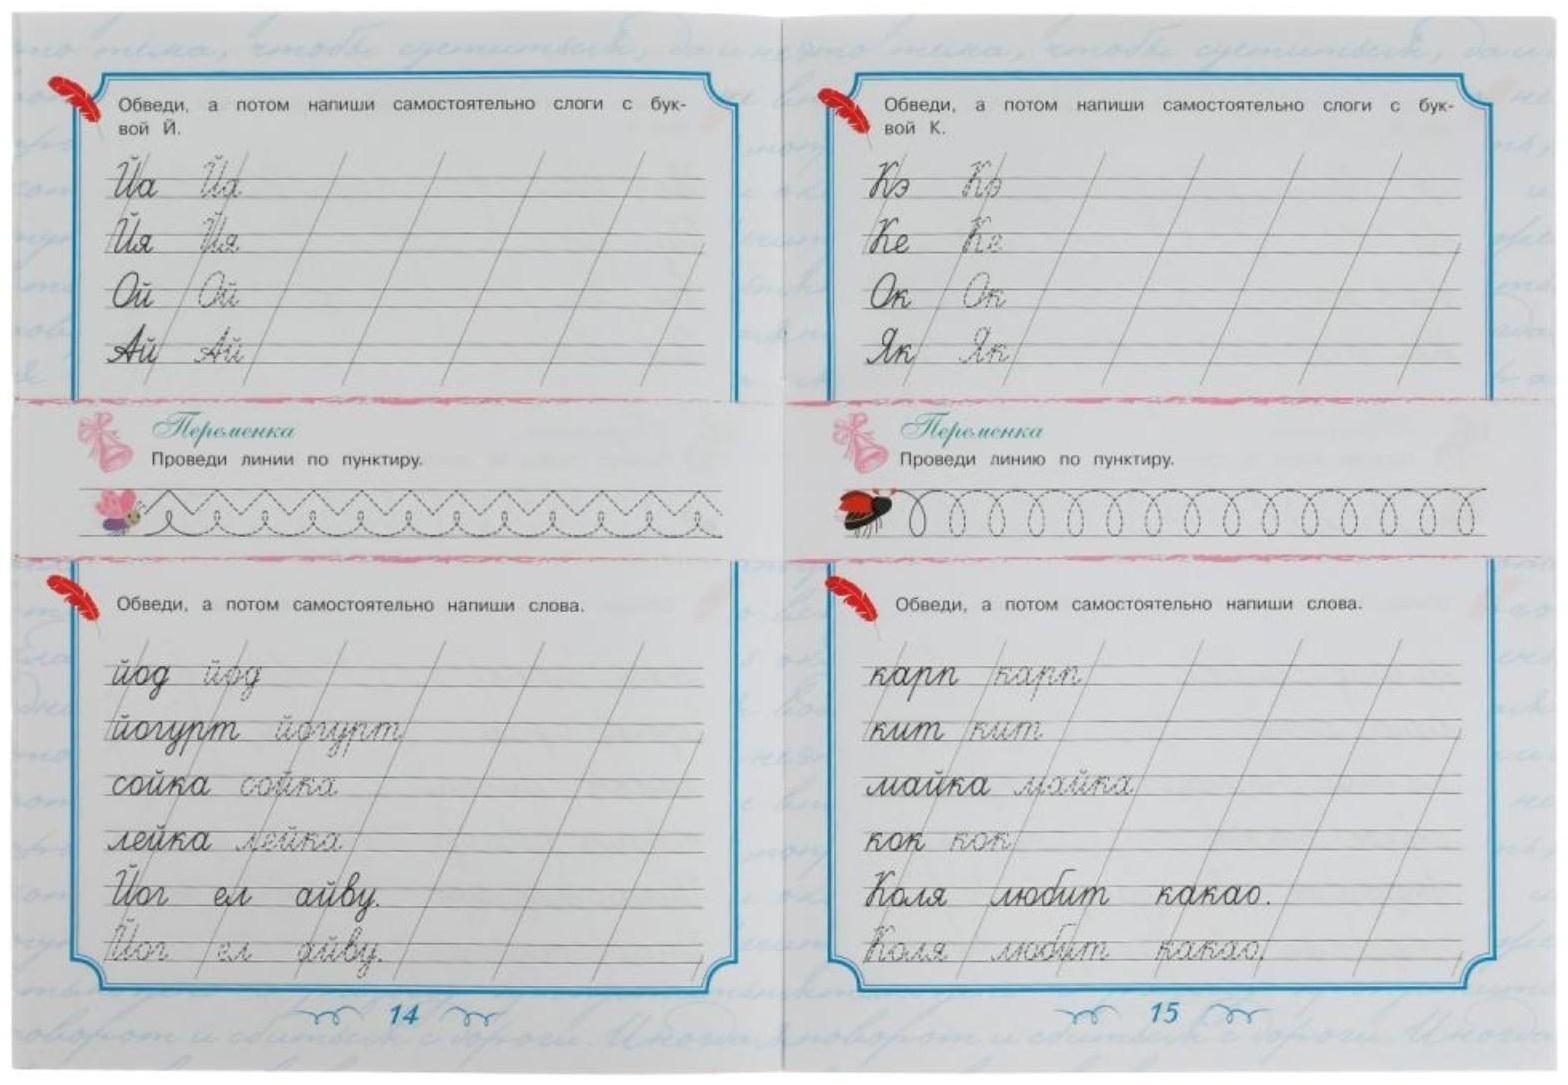 Обведи, а потом напиши самостоятельно слоги с бук-
вой Й.
Йа Йа
Йя Йя
Ой Ой
Ай Ай
Переменка
Проведи линии по пунктиру.
Обведи, а потом самостоятельно напиши слова.
йод йод
йогурт йогурт
сойка сойка
лейка лейка
Йог ел айву.
Йог ел айву.
14
Обведи, а потом напиши самостоятельно слоги с бук-
вой К.
Кэ Кэ
Ке Ке
Ок Ок
Як Як
Переменка
Проведи линию по пунктиру.
Обведи, а потом самостоятельно напиши слова.
карп карп
кит кит
майка майка
кок кок
Коля любит какао.
Коля любит какао.
15